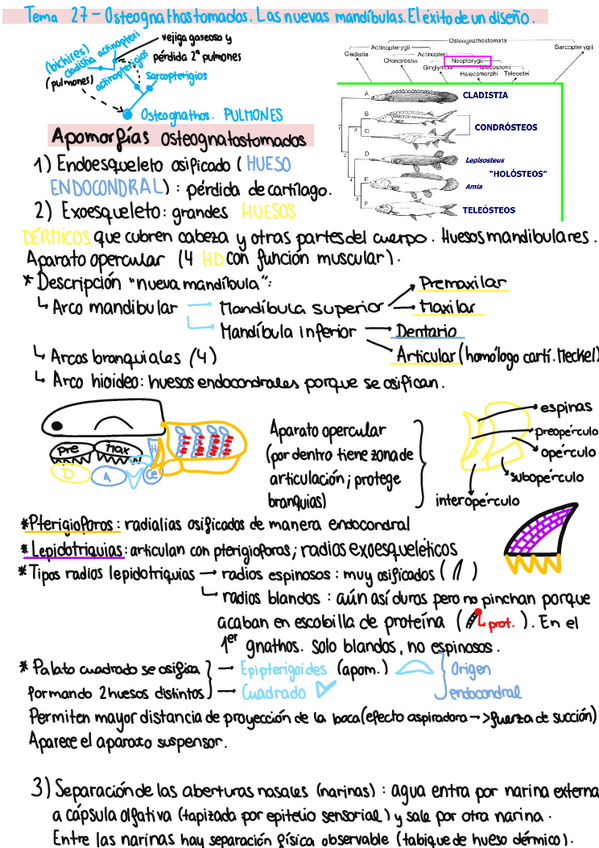 Tema 27 - Osteognathostomados. Las nuevas mandíbulas. El éxito de un diseño.
(bichires)
cladistia
actinopteri
vejiga gaseosa y
pérdida 2ª pulmones
(pulmones)
actinopterigios
Sarcopterigios
Osteognathos. PULMONES
Osteognathostomata
Actinopterygii
Sarcopterygii
Cladistia
Actinopteri
Chondrostei
Neopterygii
Halecomorphi
Teleostei
A
CLADISTIA
B
C
CONDRÓSTEOS
D
Lepisosteus
"HOLÓSTEOS"
E
Amia
F
TELEÓSTEOS
Apomorfías osteognatostomados
1) Endoesqueleto osificado (HUESO
ENDOCONDRAL) : pérdida de cartílago.
2) Exoesqueleto: grandes HUESOS
DÉRMICOS que cubren cabeza y otras partes del cuerpo. Huesos mandibulares.
Aparato opercular (4 HD con función muscular).
* Descripción "nueva mandíbula":
↳ Arco mandibular → Mandíbula superior → Premaxilar
→ Maxilar
↳ Mandíbula inferior → Dentario
→ Articular (homólogo cartí. Meckel)
↳ Arcos branquiales (4)
↳ Arco hioideo: huesos endocondrales porque se osifican.
Pre
Max
D
A
H
Ce
Aparato opercular
(por dentro tiene zona de
articulación; protege
branquias)
espinas
preopérculo
opérculo
subopérculo
interopérculo
*Pterigioforos: radialias osificados de manera endocondral
* Lepidotriquias: articulan con pterigioforos; radios exoesqueléticos
* Tipos radios lepidotriquias → radios espinosos : muy osificados ( )
↳ radios blandos : aún así duros pero no pinchan porque
acaban en escobilla de proteína ( prot. ). En el
1er gnathos. solo blandos, no espinosos.
* Palato cuadrado se osifica → Epipterigoides (apom.)
formando 2 huesos distintos → Cuadrado
Origen
endocondral
Permiten mayor distancia de proyección de la boca (efecto aspiradora -> fuerza de succión)
Aparece el aparato suspensor.
3) Separación de las aberturas nasales (narinas) : agua entra por narina externa
a cápsula olfativa (tapizada por epitelio sensorial) y sale por otra narina.
Entre las narinas hay separación física observable (tabique de hueso dérmico).